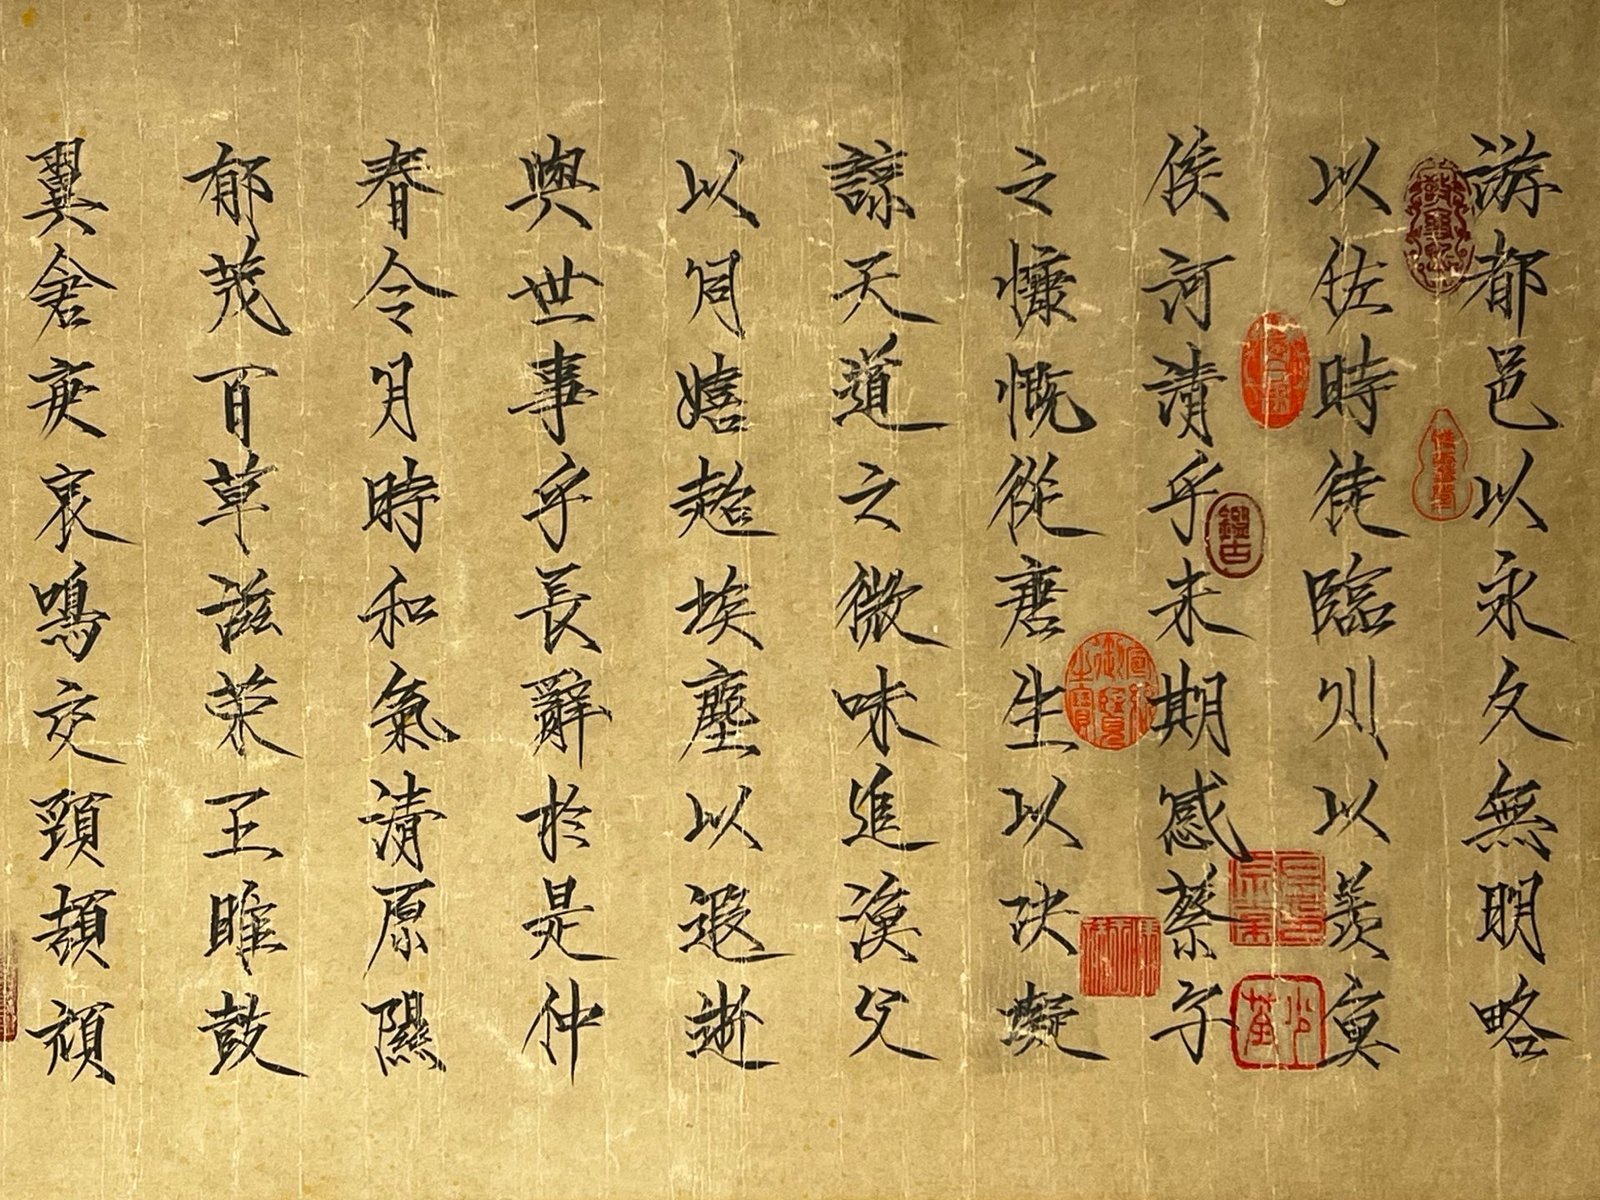 游都邑以永久無明略
以佐時徒臨川以羨魚
俟河清乎未期感蔡子
之慷慨從唐生以決疑
諒天道之微昧追漁父
以同嬉超埃塵以遐逝
與世事乎長辭於是仲
春令月時和氣清原隰
郁茂百草滋榮王雎鼓
翼倉庚哀鳴交頸頡頏
鑑古
宣統御覽之寶